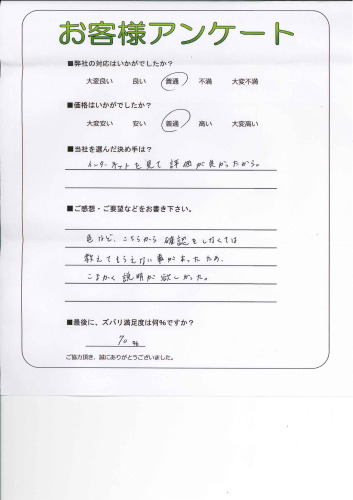 お客様アンケート
■弊社の対応はいかがでしたか？
大変良い 良い 普通 不満 大変不満
■価格はいかがでしたか？
大変安い 安い 普通 高い 大変高い
■当社を選んだ決め手は？
インターネットを見て評価が良かったから。
■ご感想・ご要望などをお書き下さい。
色など、こちらから確認をしなくては
教えてもらえない事があったため、
こまかく説明が欲しかった。
■最後に、ズバリ満足度は何%ですか？
70%
ご協力頂き、誠にありがとうございました。